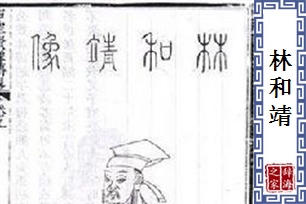 林和靖像
林和靖
辭海
之家